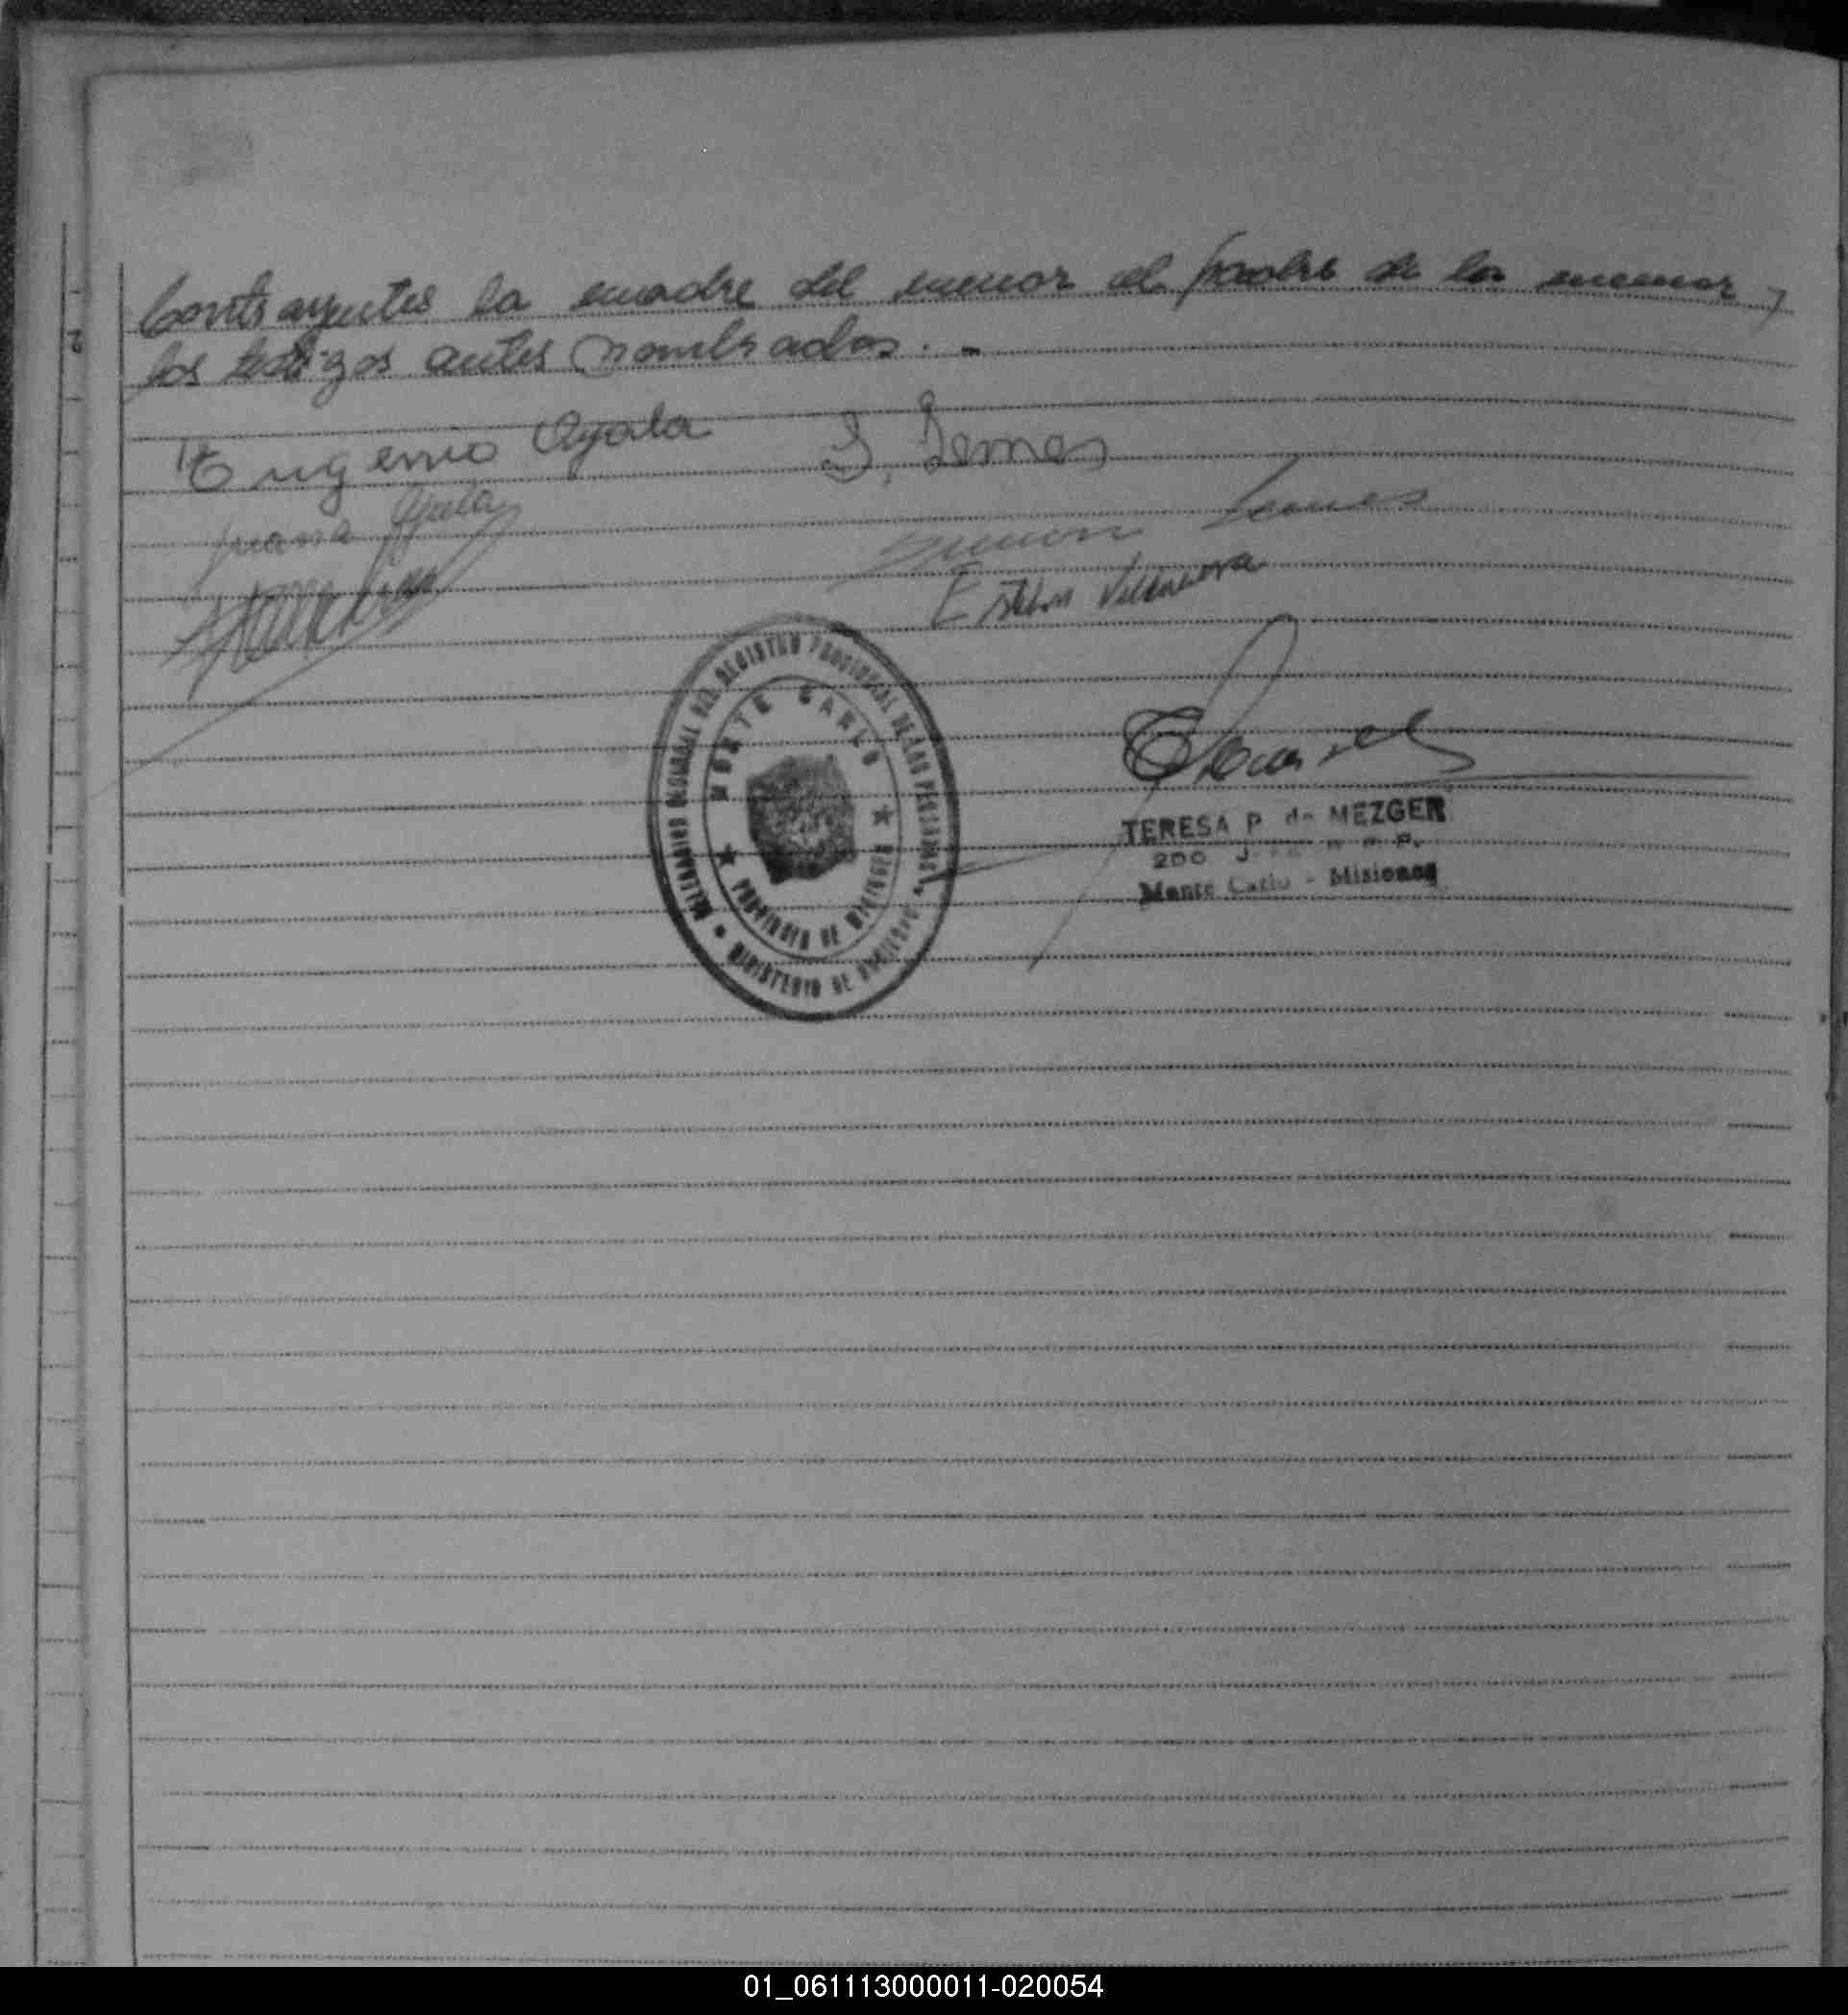 Contrayentes la madre del menor el padre de la menor y
los testigos antes nombrados. -
Eugenio Ayala
S. Lemes
Juana Ayala
Simon Lemes
Esteban Villanueva
DELEGACION SECCIONAL DEL REGISTRO PROVINCIAL DE LAS PERSONAS
MONTE CARLO
PROVINCIA DE MISIONES
MINISTERIO DE GOBIERNO
TERESA P. de MEZGER
Monte Carlo - Misiones
2
01_061113000011-020054